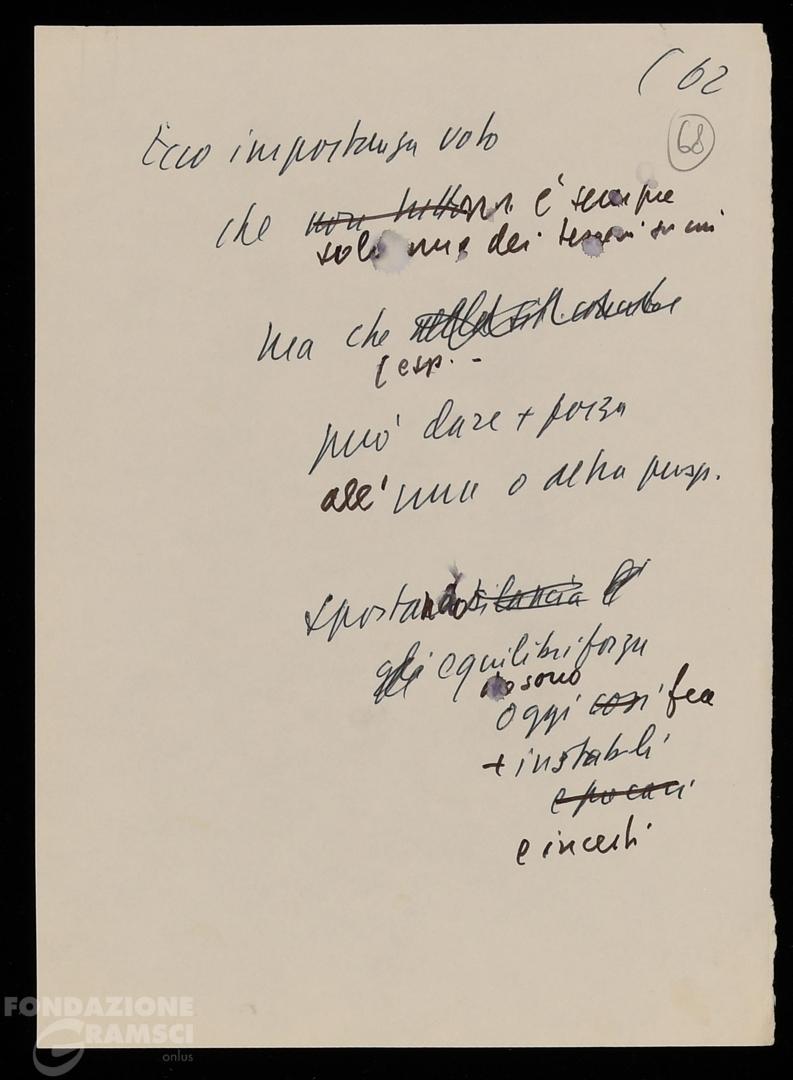 ( 62
68
Ecco importanza voto
che non tutto non è sempre
solo uno dei
ma che
[esp. -
può dare + forza
all'una o altra prosp.
spostando bilancia
gli equilibri forza
che sono
oggi così fra
+ instabili
e precari
e incerti
FONDAZIONE
GRAMSCI
onlus